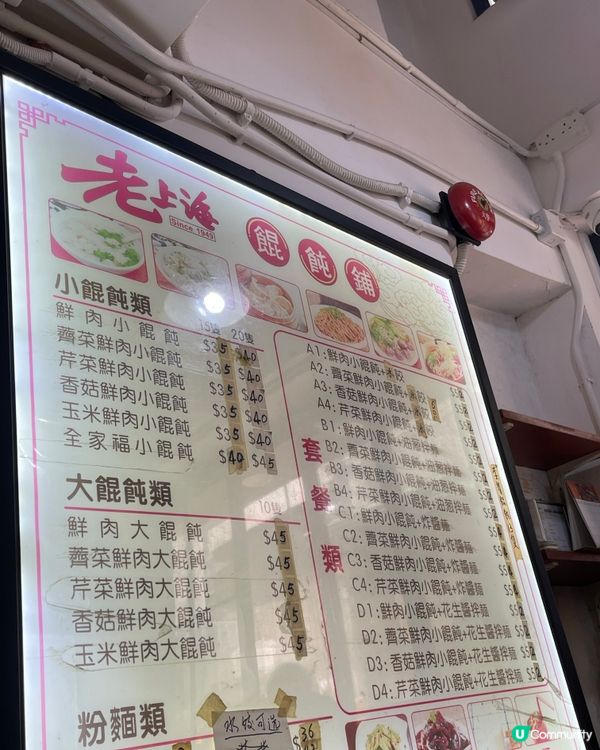 老上海
Since 1949
餛飩鋪
小餛飩類
15隻 20隻
鮮肉小餛飩 $35 $40
薺菜鮮肉小餛飩 $35 $40
芹菜鮮肉小餛飩 $35 $40
香菇鮮肉小餛飩 $35 $40
玉米鮮肉小餛飩 $35 $40
全家福小餛飩 $40 $45
大餛飩類
10隻
鮮肉大餛飩 $45
薺菜鮮肉大餛飩 $45
芹菜鮮肉大餛飩 $45
香菇鮮肉大餛飩 $45
玉米鮮肉大餛飩 $45
粉麵類
水餃可选
$36
套餐類
A1:鮮肉小餛飩+冰餃 $52
A2:薺菜鮮肉小餛飩+冰餃 $52
A3:香菇鮮肉小餛飩+ $52
A4:芹菜鮮肉小餛飩+ $52
B1:鮮肉小餛飩+油葱拌麵 $52
B2:薺菜鮮肉小餛飩+油葱拌麵 $52
B3:香菇鮮肉小餛飩+油葱拌麵 $52
B4:芹菜鮮肉小餛飩+油葱拌麵 $52
C1:鮮肉小餛飩+炸醬麵 $52
C2:薺菜鮮肉小餛飩+炸醬麵 $52
C3:香菇鮮肉小餛飩+炸醬麵 $52
C4:芹菜鮮肉小餛飩+炸醬麵 $52
D1:鮮肉小餛飩+花生醬拌麵 $52
D2:薺菜鮮肉小餛飩+花生醬拌麵 $52
D3:香菇鮮肉小餛飩+花生醬拌麵 $52
D4:芹菜鮮肉小餛飩+花生醬拌麵 $52
U Community